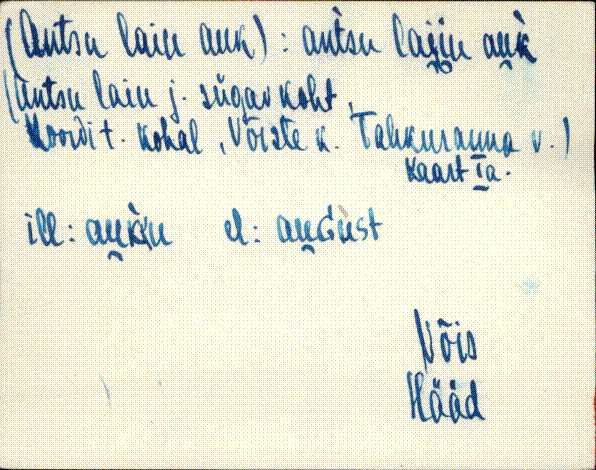 (Antsu laiu auk) : antsu laiu auk
(Antsu laiu j. sügav koht,
Koordi t. kohal, Võiste k. Tahkuranna v.)
Kaart Ia.
ill: aukku el: august
Võis
Hääd